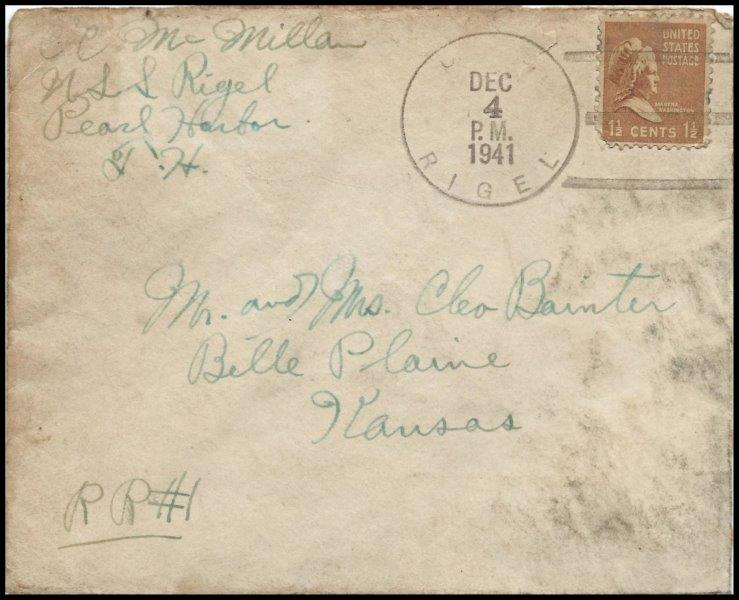 C C Mc Millan
U S S Rigel
Pearl Harbor
T. H.
DEC
4
P.M.
1941
RIGEL
UNITED
STATES
POSTAGE
MARTHA
WASHINGTON
1½ CENTS 1½
Mr. and Mrs. Cleo Bainter
Belle Plaine
Kansas
R R #1